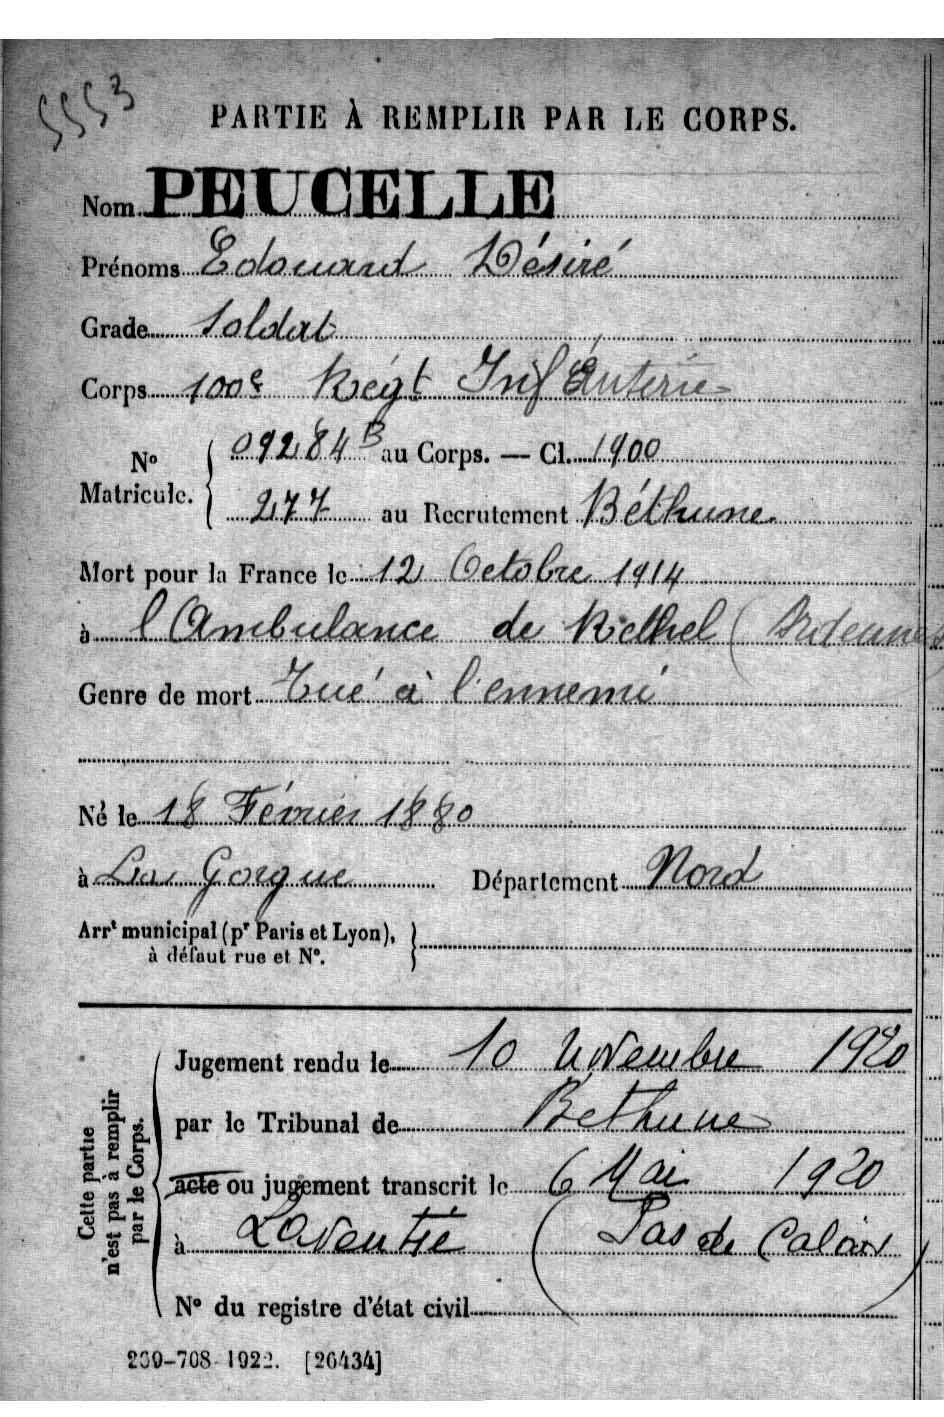 5553
PARTIE À REMPLIR PAR LE CORPS.
Nom PEUCELLE
Prénoms Edouard Désiré
Grade Soldat
Corps 100e Régt Infanterie
No Matricule. 09284 B au Corps. — Cl. 1900
277 au Recrutement Béthune
Mort pour la France le 12 Octobre 1914
à l'Ambulance de Rethel (Ardennes)
Genre de mort Tué à l'ennemi
Né le 18 Février 1880
à La Gorgue Département Nord
Arrt municipal (pr Paris et Lyon),
à défaut rue et No.
Cette partie
n'est pas à remplir
par le Corps.
Jugement rendu le 10 Novembre 1920
par le Tribunal de Bethune
acte ou jugement transcrit le 6 Mai 1920
à Laventie (Pas de Calais)
No du registre d'état civil
269-708-1922. [26434]